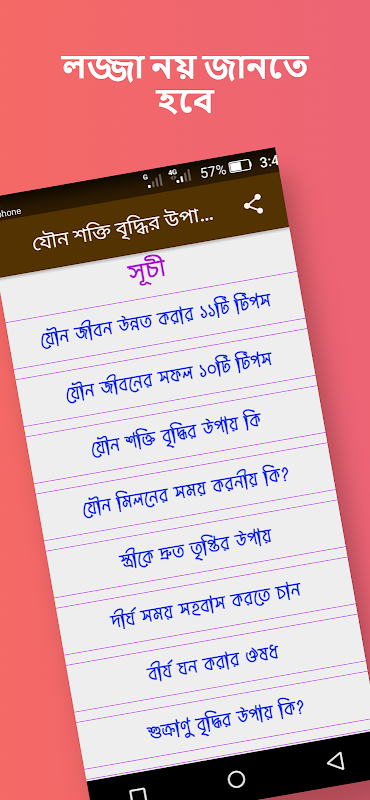 লজ্জা নয় জানতে
হবে
phone
G 4G 57% 3:4
যৌন শক্তি বৃদ্ধির উপা...
সূচী
যৌন জীবন উন্নত করার ১১টি টিপস
যৌন জীবনের সফল ১০টি টিপস
যৌন শক্তি বৃদ্ধির উপায় কি
যৌন মিলনের সময় করনীয় কি?
স্ত্রীকে দ্রুত তৃপ্তির উপায়
দীর্ঘ সময় সহবাস করতে চান
বীর্য ঘন করার ঔষধ
শুক্রাণু বৃদ্ধির উপায় কি?